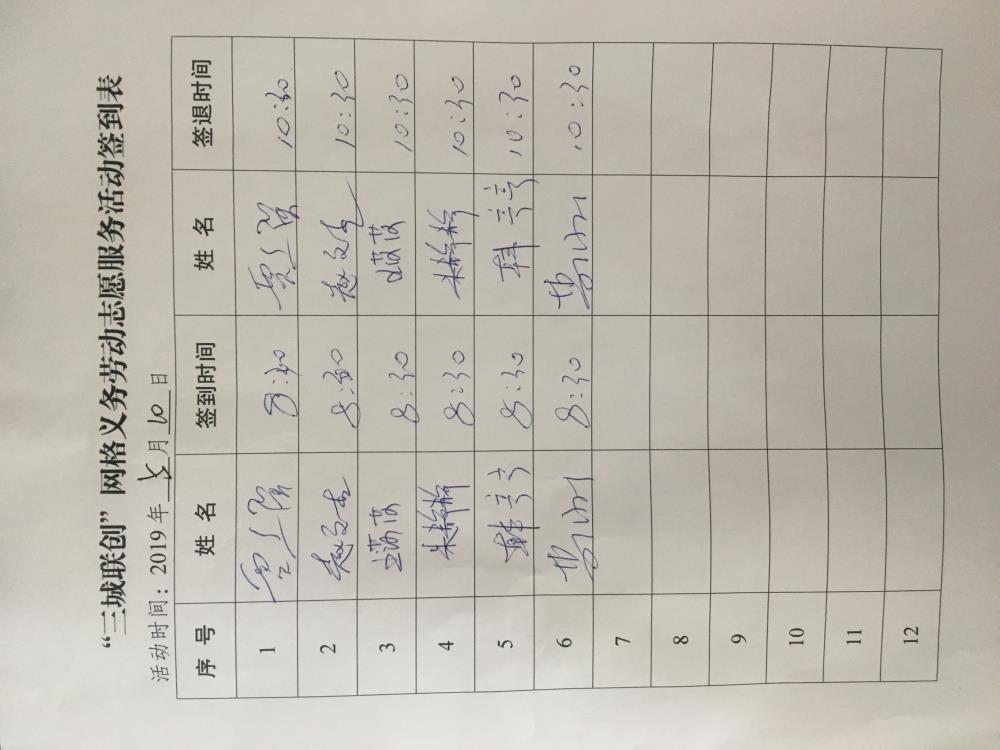 “三城联创”网格义务劳动志愿服务活动签到表
活动时间：2019年 5 月 10 日
序 号 姓 名 签到时间 姓 名 签退时间
1 8:30 10:30
2 8:30 10:30
3 8:30 10:30
4 8:30 10:30
5 韩亮亮 8:30 韩亮亮 10:30
6 8:30 10:30
7
8
9
10
11
12